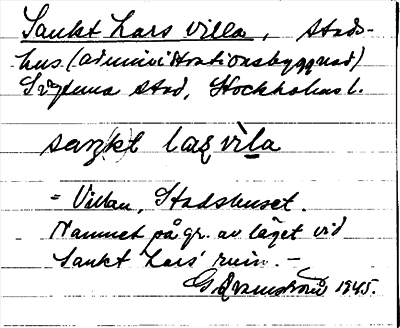 Sankt Lars villa, stads-
hus (administrationsbyggnad)
Sigtuna stad, Stockholms l.
saŋ(k)t laʂ vìla
= Villan, Stadshuset.
Namnet på gr. av läget vid
Sankt Lars' ruin. —
1945.